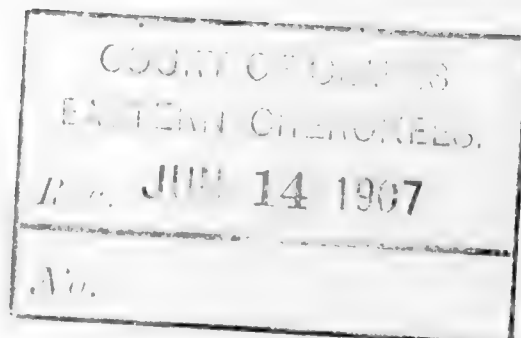 COURT OF CLAIMS
EASTERN CHEROKEES.
Rec. JUN 14 1907
No.